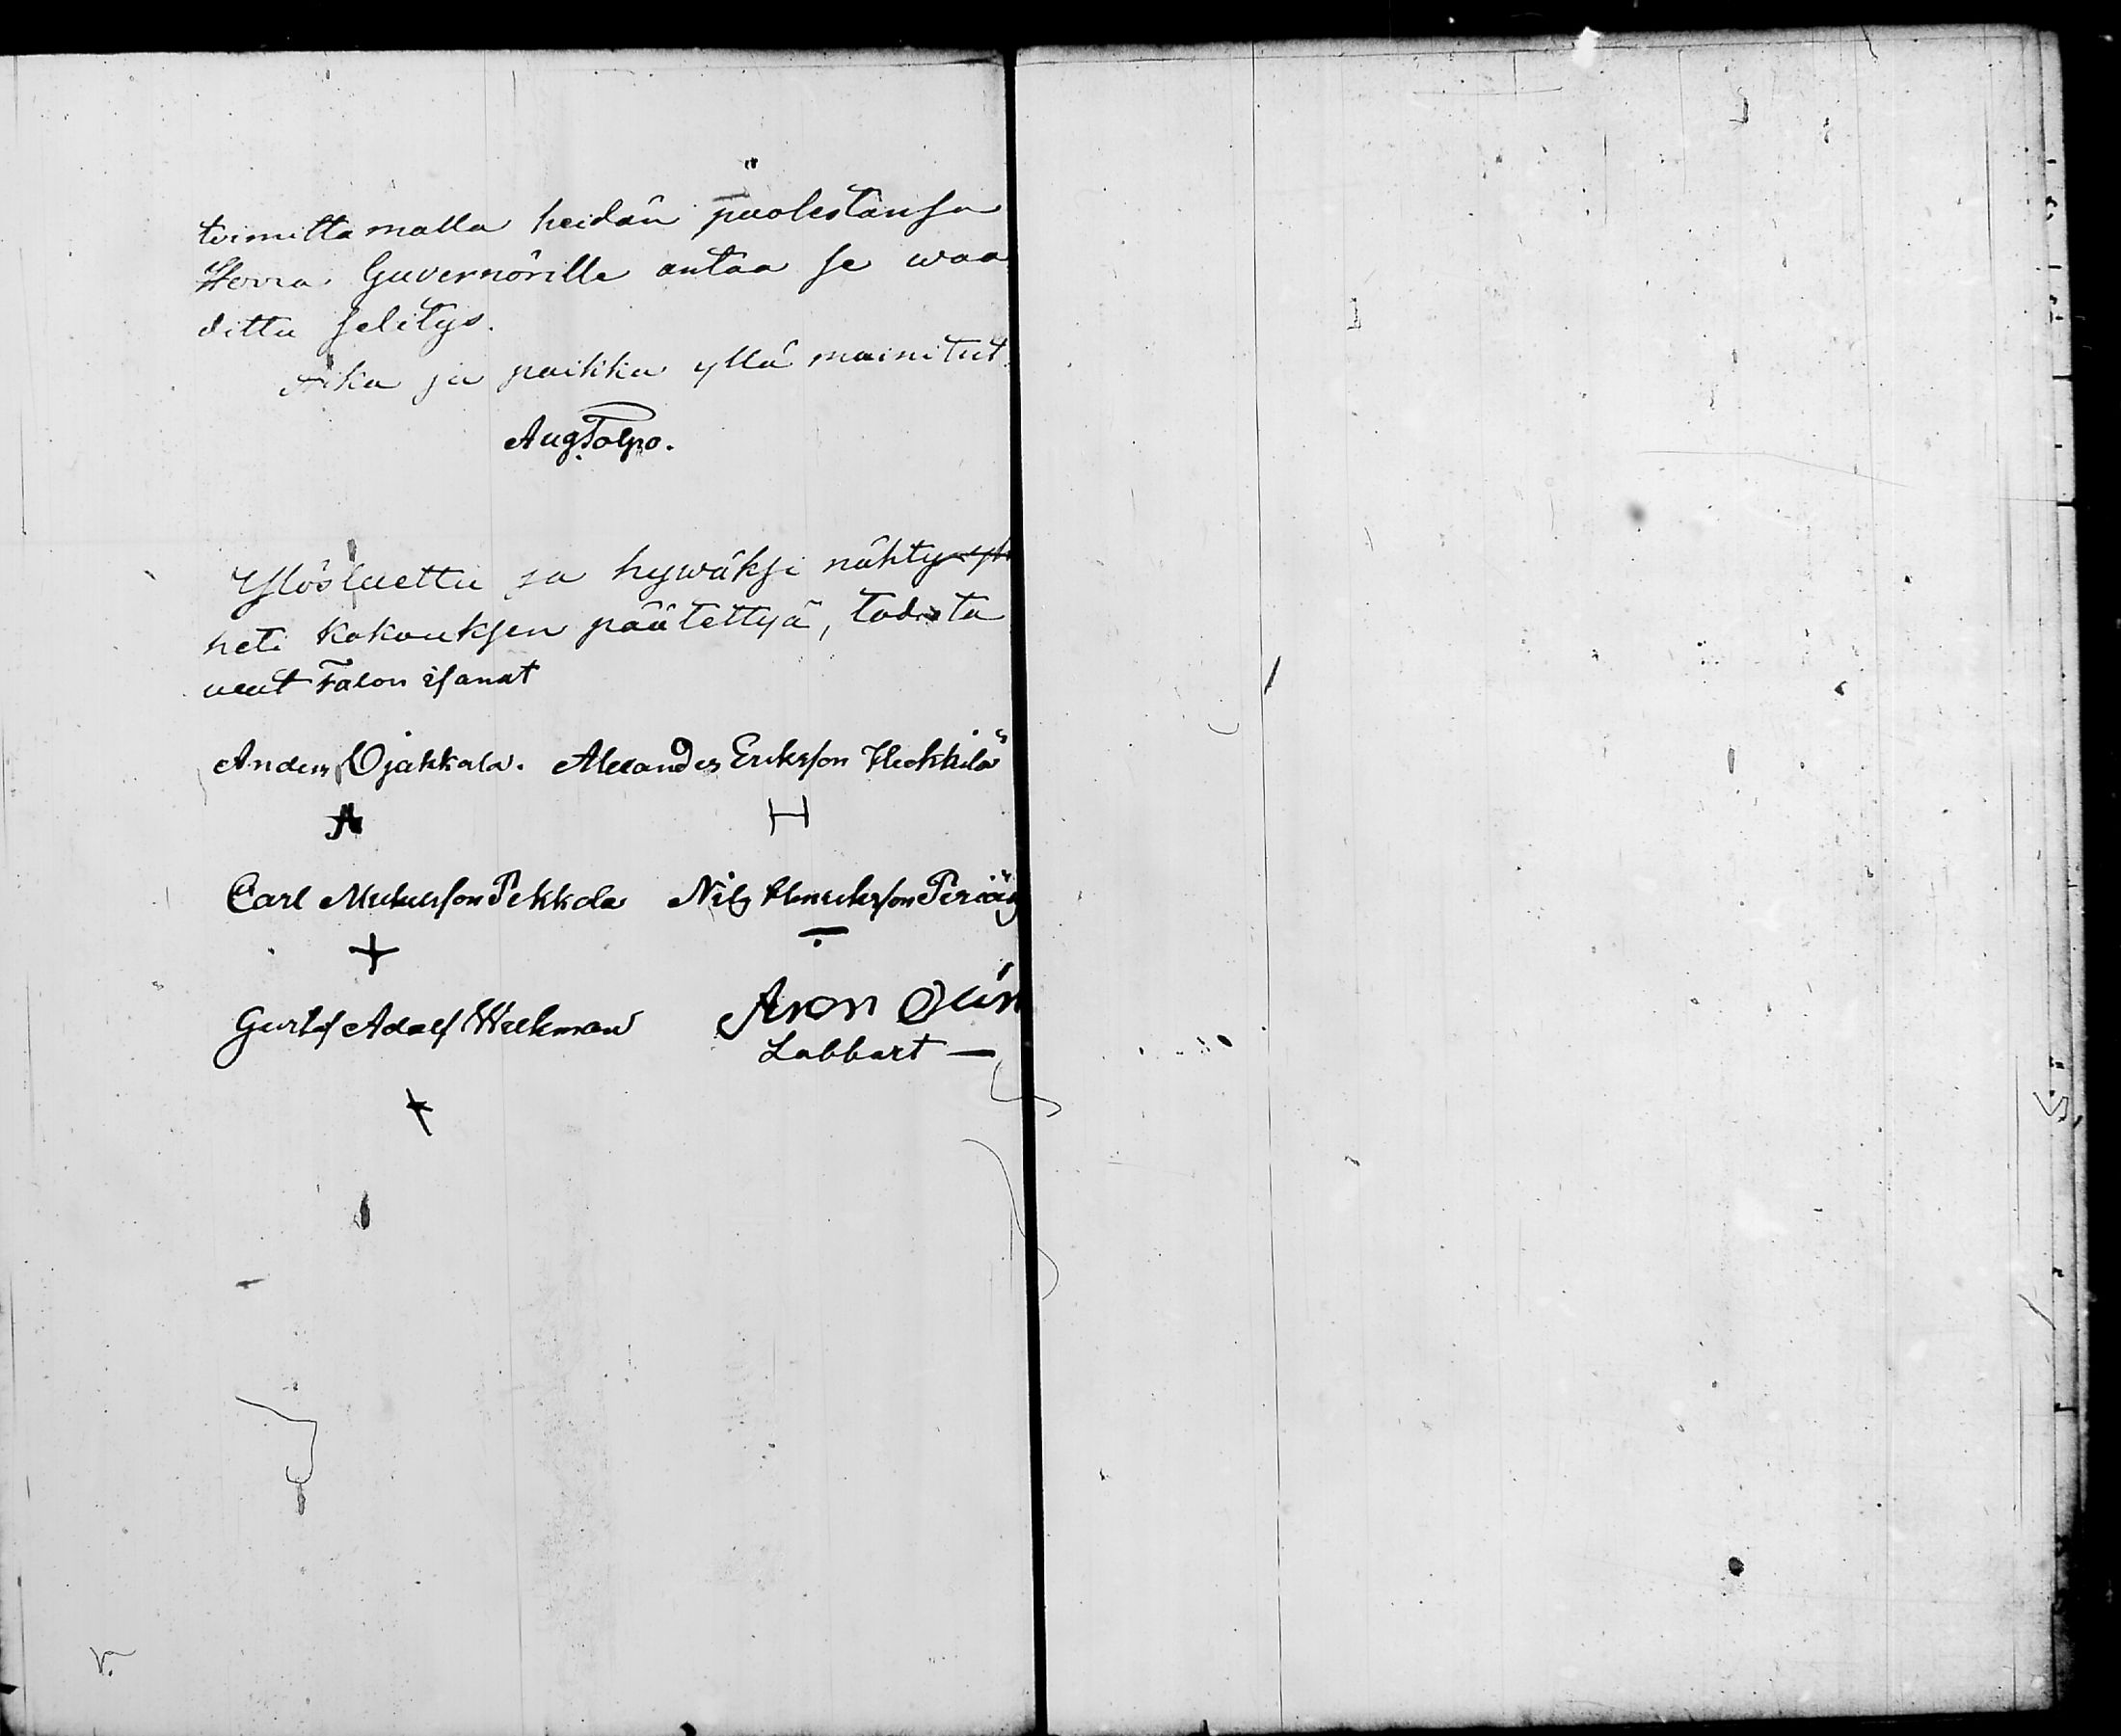 toimittamalla heidän puolestansa
Herra Guvernörille antaa se waa
dittu selitys.
Aika ja paikka yllä mainitut.
Aug Tolpo.
Ylösluettu ja hywäksi nähty
heti kokouksen päätettyä, todista
wat Talon isännät
Anders Ojakkala. Alexander Eriksson Heikkilä
A H
Carl Michelsson Pekkola Nils Henriksson
+
Gustaf Adolf Weckman Aron
Labbart —
+